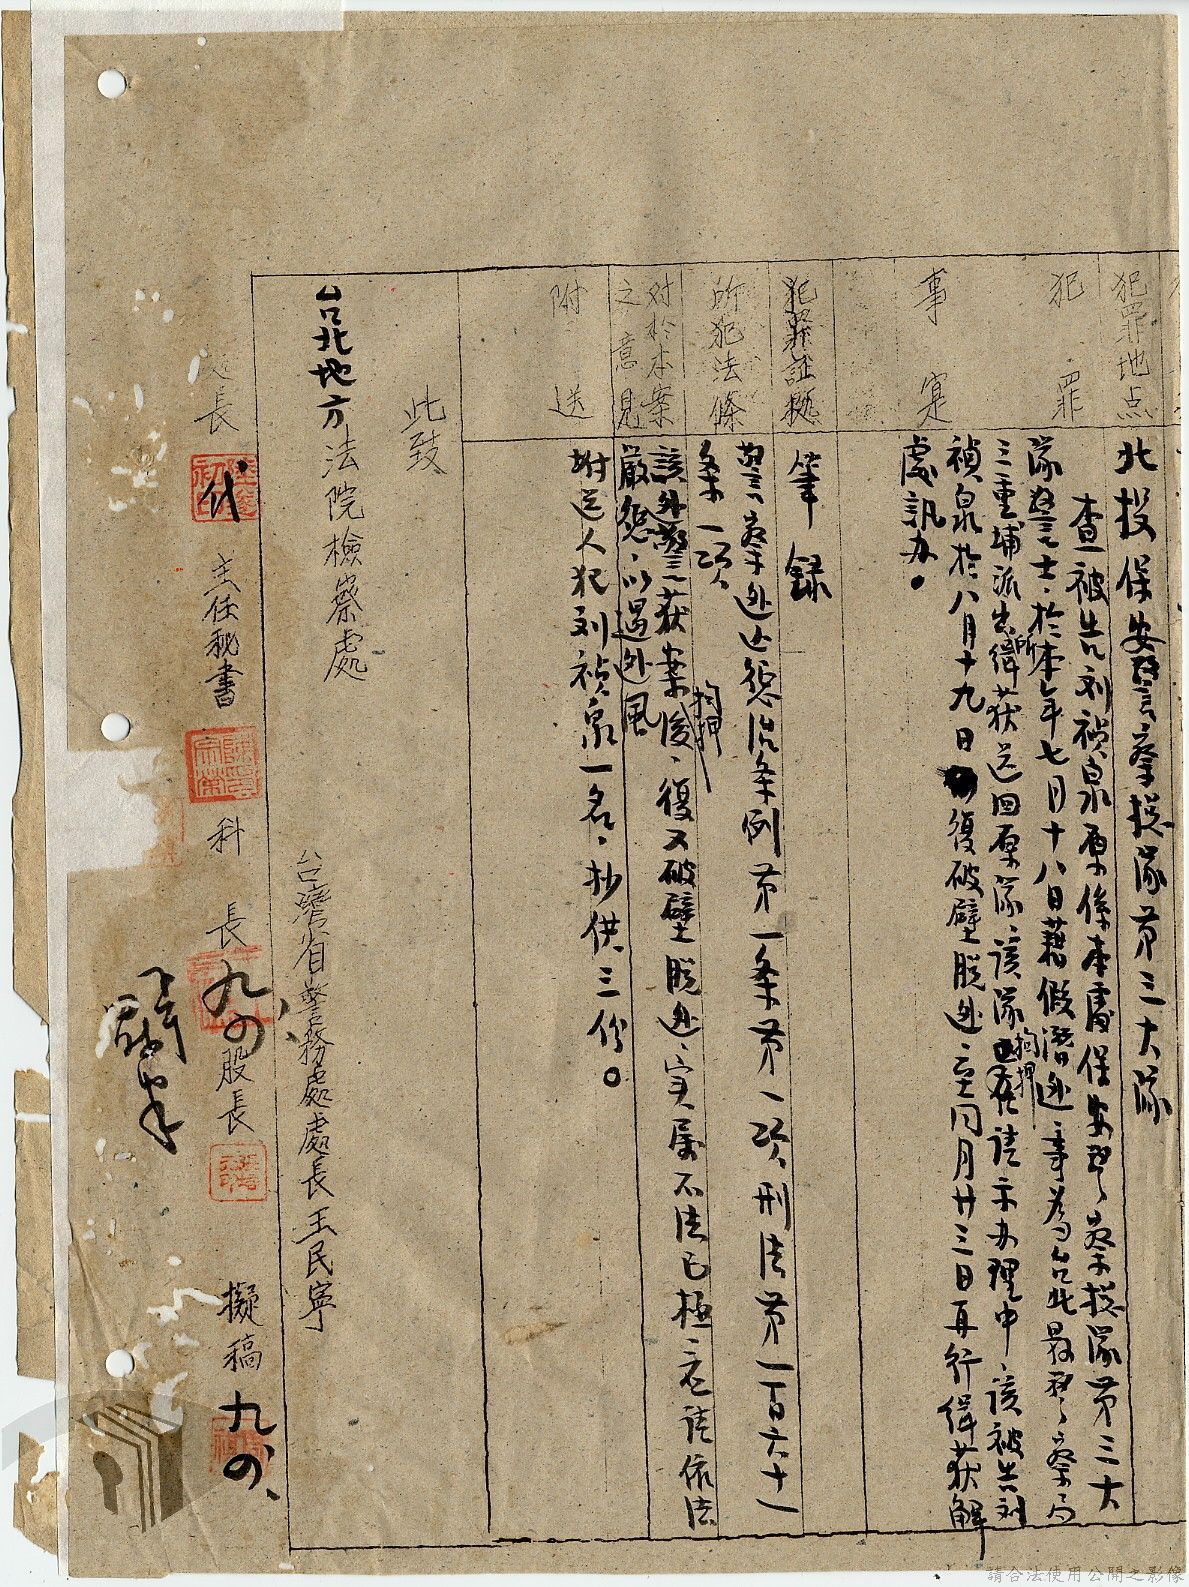 犯罪地点
北投保安警察總隊第三大隊
犯罪
事實
查被告刘禎泉原係本處保安警察總隊第三大
隊警士、於本年七月十八日藉假潛逃、事為台北縣警察局
三重埔派出所緝获送回原隊、該隊拘押在請示办理中、該被告刘
禎泉於八月十九日復破壁脱逃、至同月廿三日再行緝获解
處訊办。
犯罪証據
筆錄
所犯法條
警察逃亡懲治条例第一条第一项刑法第一百六十一
条一项
对於本案
之意見
該逃警获案拘押後、復又破壁脱逃、实属不法已極、請依法
嚴懲、以遏逃風
附送
附送人犯刘禎泉一名、抄供三份。
此致
台北地方法院檢察處
台灣省警務處處長王民寧
處長
代
主任秘書
科長
九、四、
股長
擬稿
九、四、